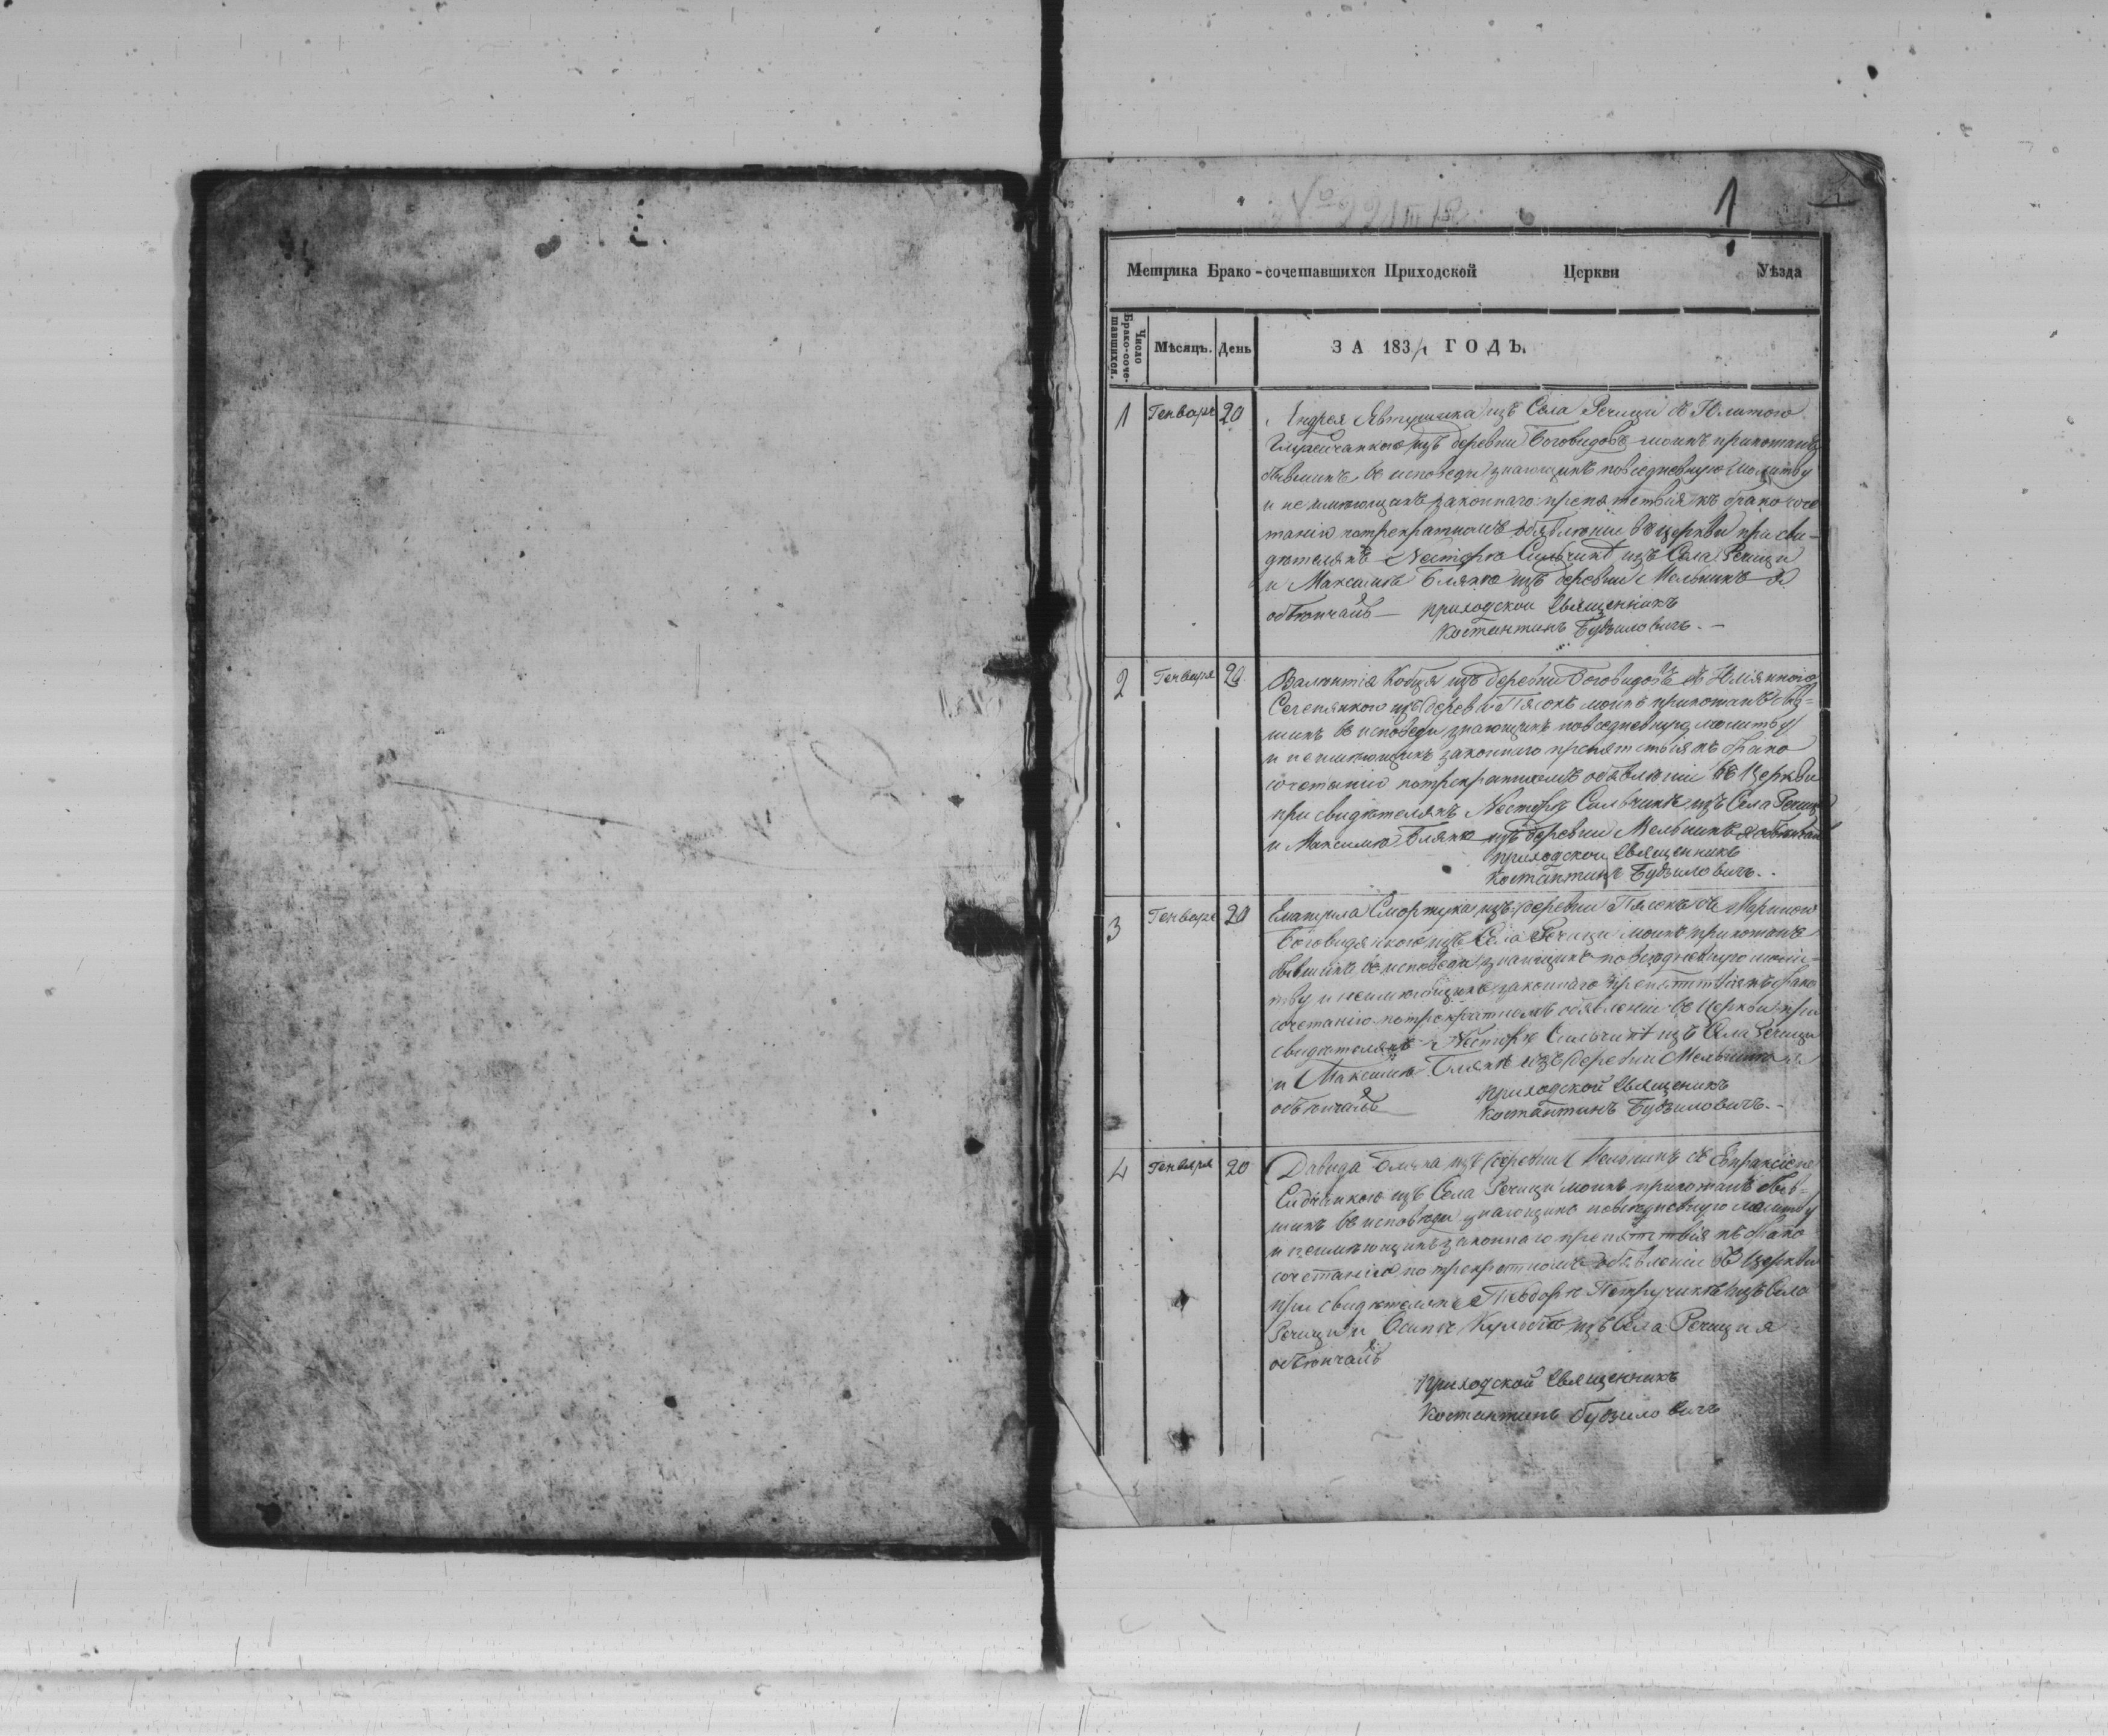 1
Метрика Брако-сочетавшихся Приходской Церкви Уѣзда
Число Брако-соче-
тавшихся.
Мѣсяць. День
ЗА 183 ГОДЪ.
1 Генваря 20 Андрея Явтушика изъ Села Речици съ
изъ деревни Боговидовъ моихъ прихожанъ
бывшихъ въ исповеди знающихъ повседневную молитву
и неимѣющихъ законнаго препятствія къ брако соче
танію потрекратномъ обявленіи въ церкви при сви-
дѣтеляхъ Нестерѣ Сильчикѣ изъ Села Речици
и Максимѣ Блякѣ изъ деревни Мельникъ я
обвѣнчалъ — приходской Священникъ
Костантинъ Будзиловичъ. —
2 Генваря 20 изъ деревни Боговидовъ съ
изъ дерев Пясокъ моихъ прихожанъ быв-
шихъ въ исповеди знающихъ повседневную молитву
и неимѣющихъ законнаго препятствія къ брако
сочетанію потрекратномъ обявленіи въ Церкви
при свидѣтеляхъ Нестерѣ Сильчикѣ изъ Села Речици
и Максимѣ Блякѣ изъ деревни Мельникъ я
приходской Священникъ
Костантинъ Будзиловичъ. .
3 Генваря 20 изъ деревни Пясокъ съ Мариною
изъ Села Речици моихъ прихожанъ
бывшихъ въ исповеди знающихъ повседневную моли-
тву и неимѣющихъ законнаго препятствія къ брако
сочетанію потрекратномъ обявленіи въ Церкви при
свидѣтеляхъ Нестерѣ Сильчикѣ изъ Села Речици
и Максимѣ Блякѣ изъ деревни Мельникъ я
обвѣнчалъ приходской Священикъ
Костантинъ Будзиловичъ. -
4 Генваря 20 Давида Бляка изъ деревни Мельникъ съ
изъ Села Речици моихъ прихожанъ быв-
шихъ въ исповѣди знающихъ повседневную молитву
и неимѣющихъ законнаго препятствія къ брако
сочетанію потрекратномъ обявленіи въ Церкви
при свидѣтеляхъ Петручикѣ изъ Села
Речици и Осипѣ изъ Села Речици я
обвѣнчалъ
Приходской Священникъ
Костантинъ Будзиловичъ